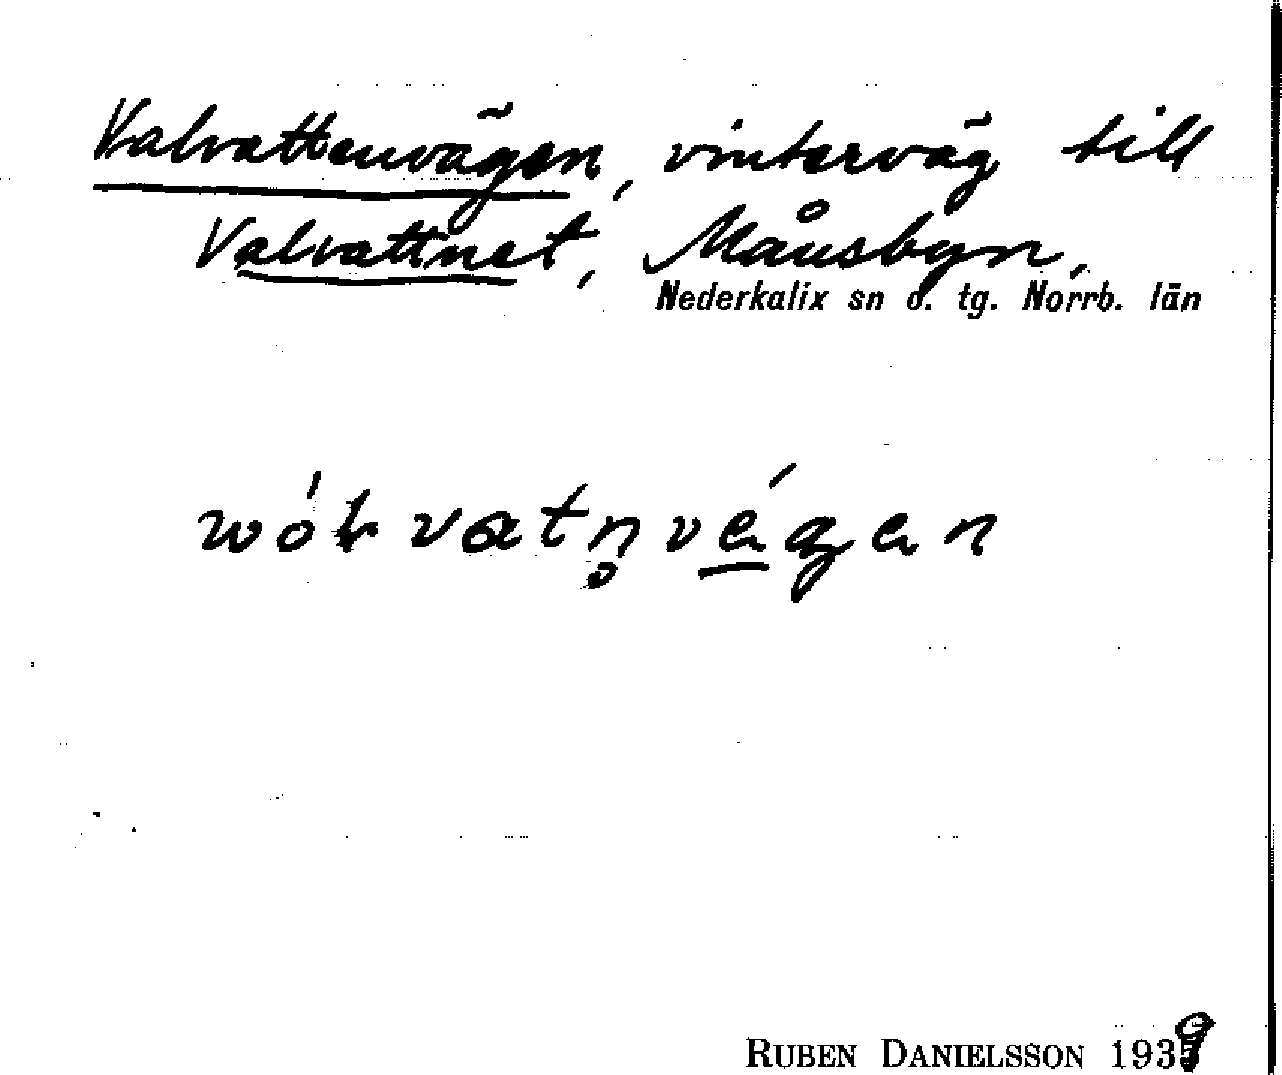 Valvattenvägen, vinterväg till
Valvattnet, Månsbyn,
Nederkalix sn o. tg. Norrb. län
RUBEN DANIELSSON 1939